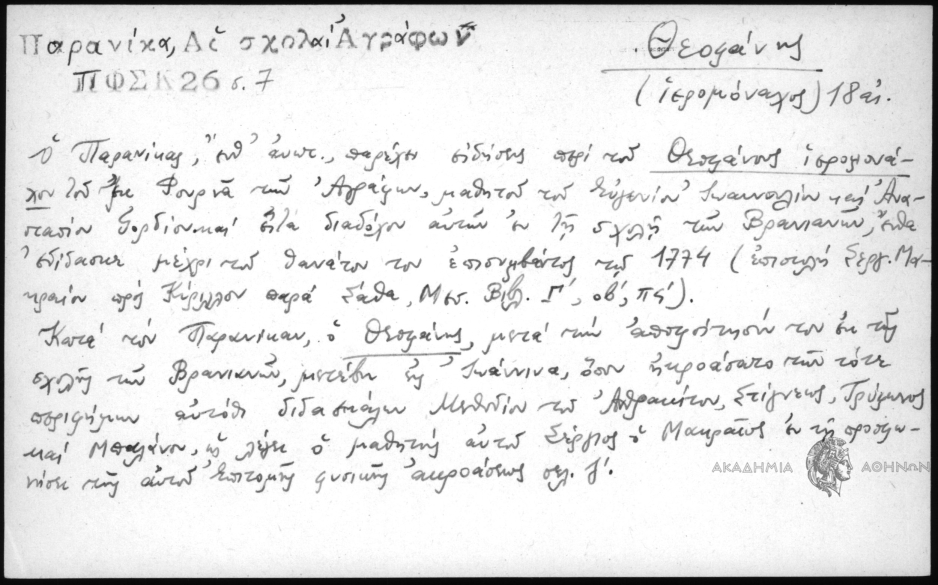 Παρανίκα, Αἱ σχολαί Ἀγράφων
ΠΦΣΚ 26 σ. 7
Θεοφάνης
(ἱερομόναχος) 18 αἰ.
Ὁ Παρανίκας, ἔνθ' ἀνωτ., παρέχει εἰδήσεις περί τοῦ Θεοφάνους ἱερομονά-
χου τοῦ ἐκ Φουρνᾶ τῶν Ἀγράφων, μαθητοῦ τοῦ Εὐγενίου Ἰωαννουλίου καί Ἀνα-
στασίου Γορδίου καί εἶτα διαδόχου αὐτῶν ἐν τῇ σχολῇ τῶν Βρανιανῶν, ἔνθα
ἐδίδασκε μέχρι τοῦ θανάτου του ἐπισυμβάντος τῷ 1774 (ἐπιστολή Σεργ. Μα-
κραίου πρός Κύριλλον παρά Σάθα, Μεσ. Βιβλ. Γ', οβ', πς').
Κατά τόν Παρανίκαν, ὁ Θεοφάνης, μετά τήν ἀποφοίτησίν του ἐκ τῆς
σχολῆς τῶν Βρανιανῶν, μετέβη εἰς Ἰωάννινα, ὅπου ἠκροάσατο τῶν τότε
περιφήμων αὐτόθι διδασκάλων Μεθοδίου τοῦ Ἀνθρακίτου, Στίγνεως, Τρύφωνος
καί Μπαλάνου, ὡς λέγει ὁ μαθητής αὐτοῦ Σέργιος ὁ Μακραῖος ἐν τῇ προσφω-
νήσει τῆς αὐτοῦ Ἐπιτομῆς φυσικῆς ἀκροάσεως σελ.
ΑΚΑΔΗΜΙΑ ΑΘΗΝΩΝ